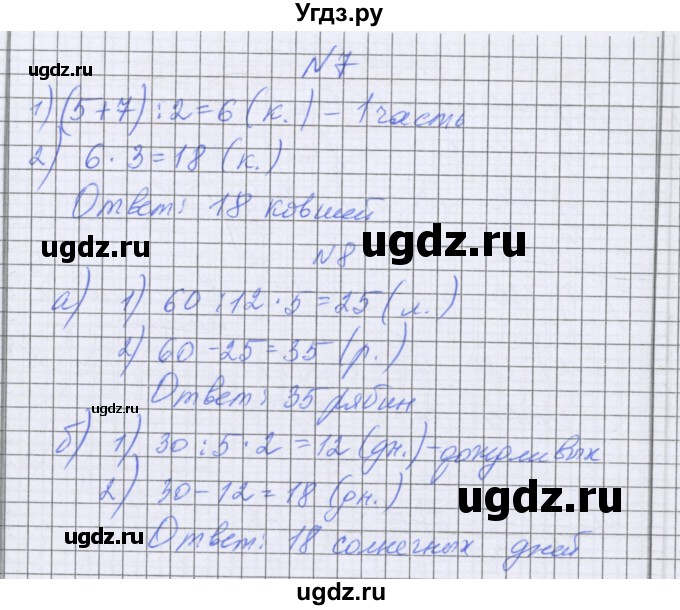 Угдз.ру
ugdz.ru
№7
1) (5+7):2=6 (к.) – 1 часть
2) 6·3=18 (к.)
Ответ: 18 ковшей
ugdz.ru
ugdz.ru
№8
а) 1) 60:12·5=25 (л.)
2) 60-25=35 (р.)
ugdz.ru
Ответ: 35 рябин
б) 1) 30:5·2=12 (дн.)-дождливых
2) 30-12=18 (дн.)
ugdz.ru
ugdz.ru
Ответ: 18 солнечных дней
ugdz.ru